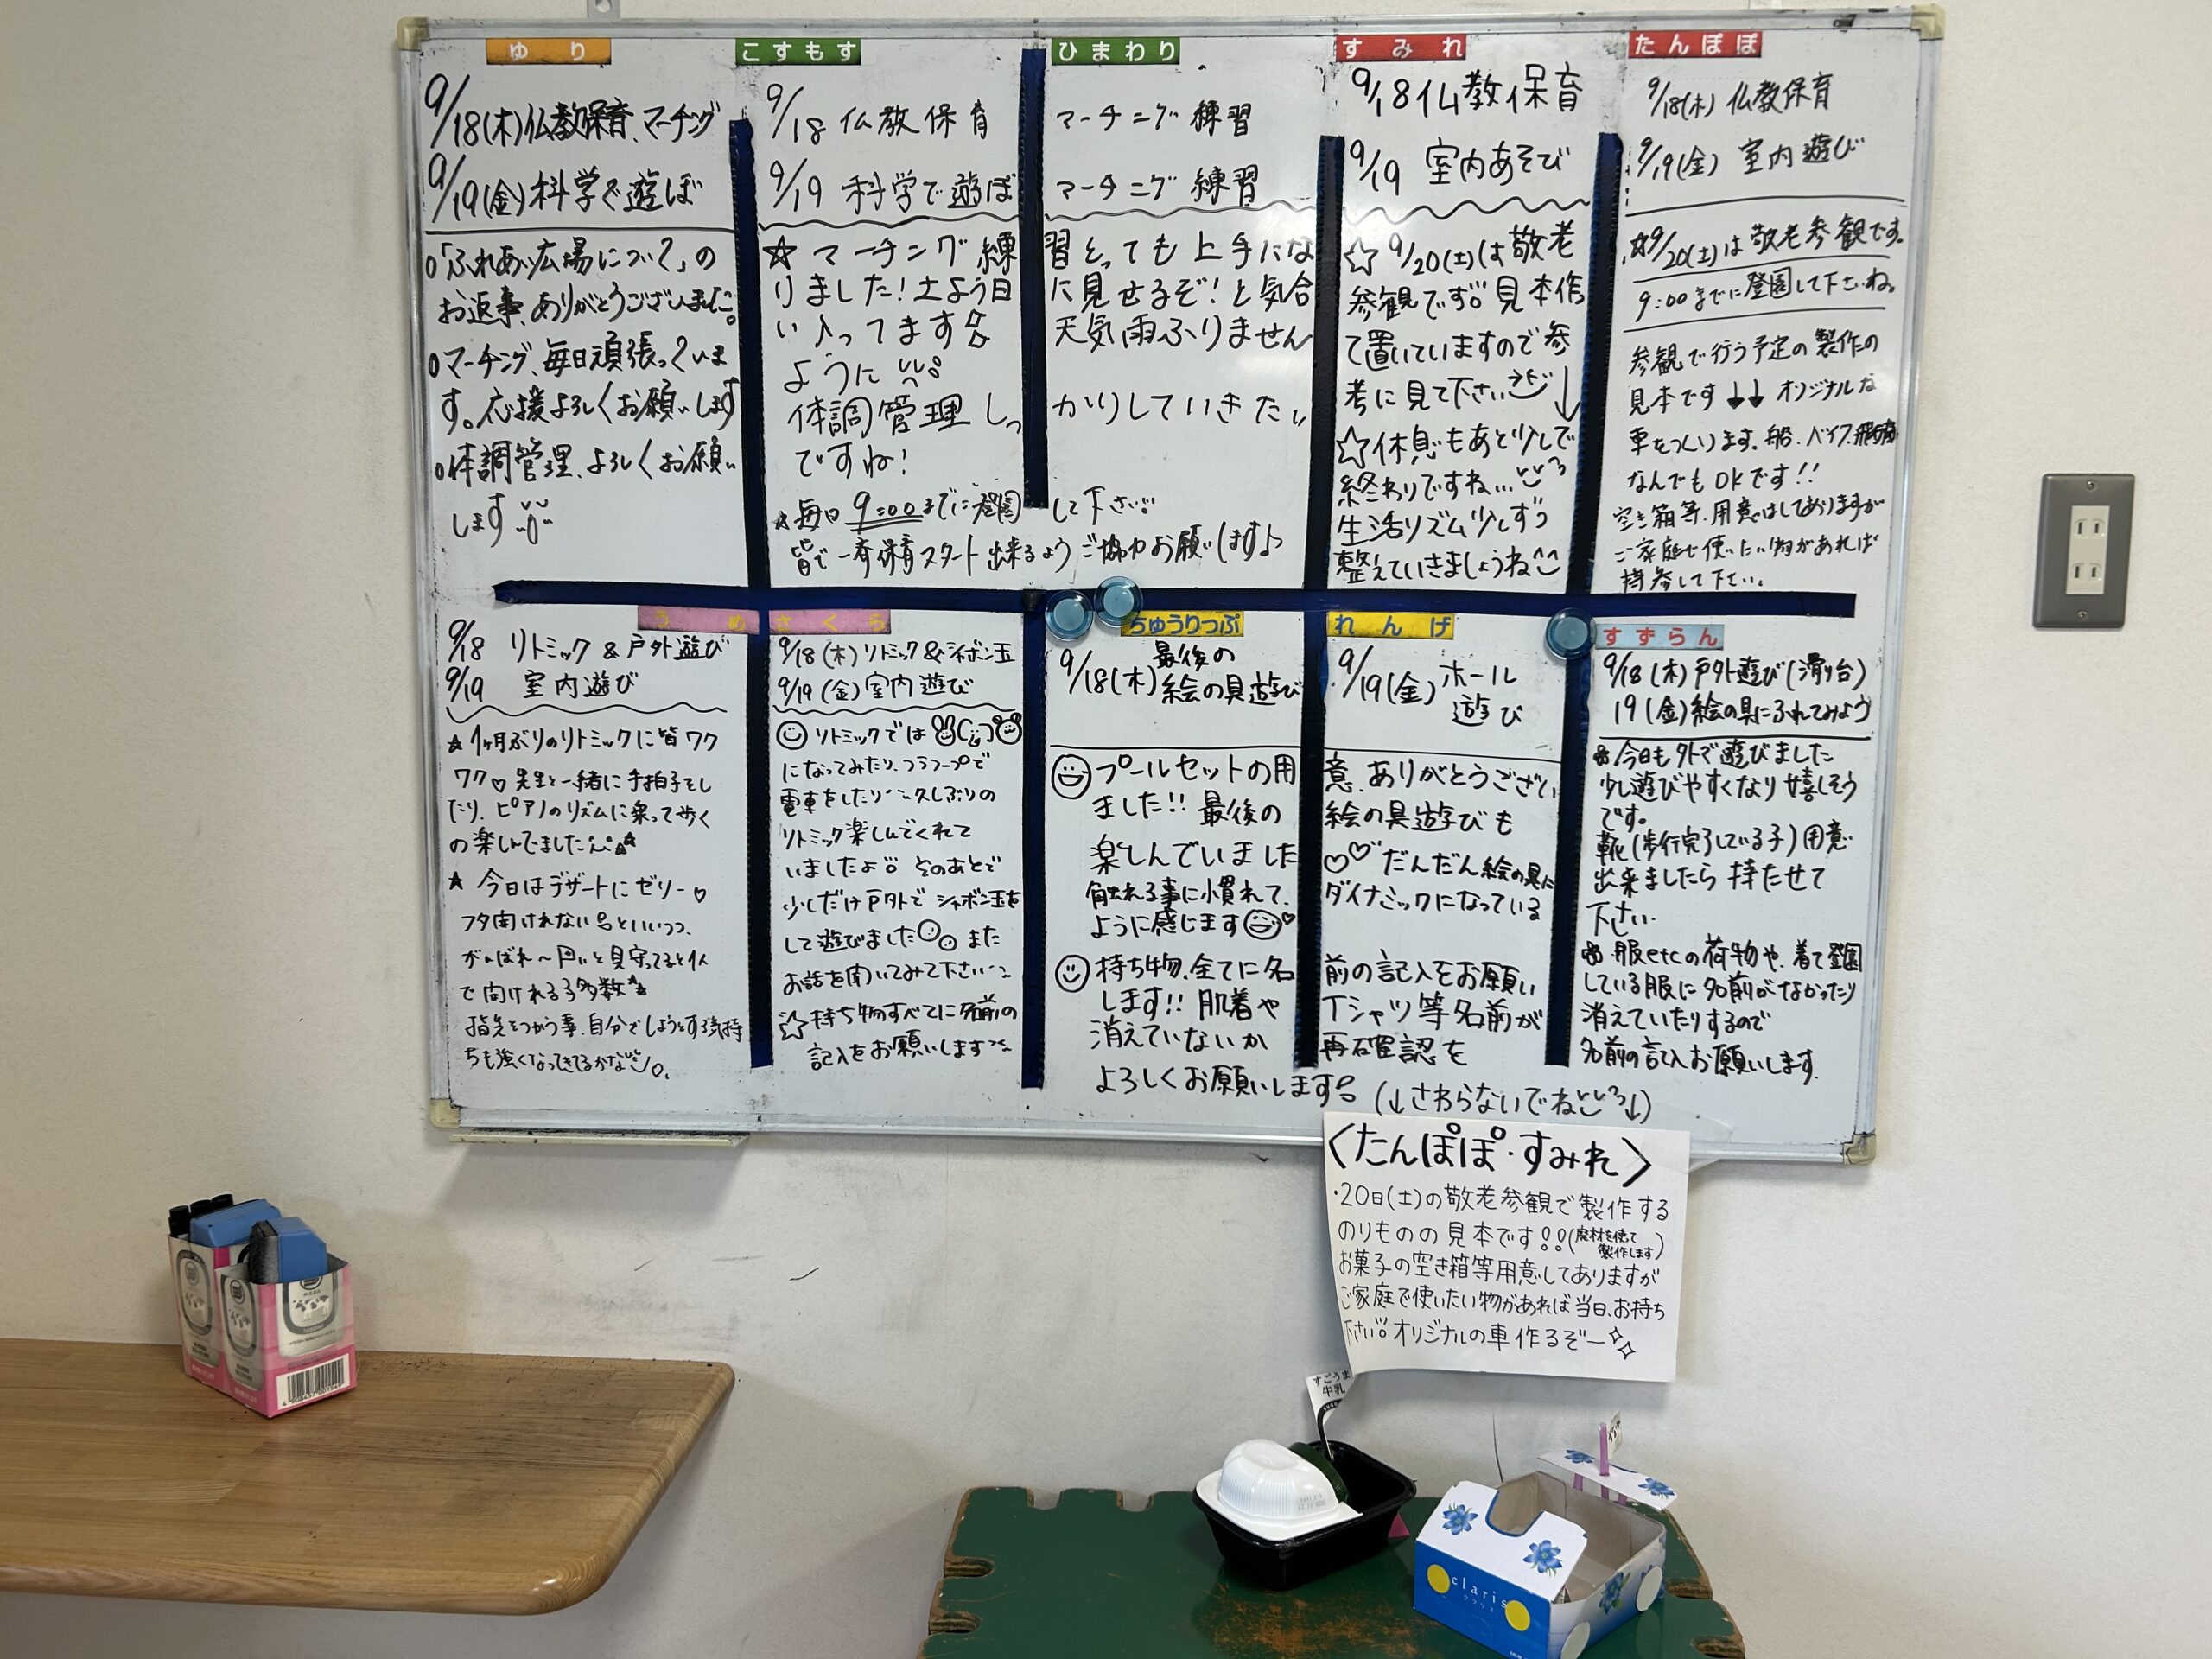 ゆり
9/18(木)仏教保育、マーチング
9/19(金)科学で遊ぼ
○「ふれあい広場について」の
お返事、ありがとうございました。
○マーチング、毎日頑張っていま
す。応援よろしくお願いします
○体調管理、よろしくお願い
します
こすもす ひまわり
9/18 仏教保育 マーチング 練習
9/19 科学で遊ぼ マーチング 練習
☆ マーチング練習とっても上手にな
りました!土よう日に見せるぞ!と気合
い入ってます 天気雨ふりません
ように
体調管理しっかりしていきたい
ですね!
★毎日 9:00までに登園して下さい
皆で一斉保育スタート出来るようご協力お願いします♪
すみれ
9/18 仏教保育
9/19 室内あそび
☆9/20(土)は敬老
参観です。見本作
て置いていますので参
考に見て下さい↓
☆休息もあと少しで
終わりですね…
生活リズム少しずつ
整えていきましょうね
たんぽぽ
9/18(木) 仏教保育
9/19(金) 室内遊び
☆9/20(土)は敬老参観です。
9:00までに登園して下さいね。
参観で行う予定の製作の
見本です↓↓ オリジナルな
車をつくります。船、バイク、飛行機
なんでもOKです!!
空き箱等、用意はしておりますが
ご家庭で使いたい物があれば
持参して下さい。
うめ
9/18 リトミック&戸外遊び
9/19 室内遊び
★1ヶ月ぶりのリトミックに皆ワク
ワク♡先生と一緒に手拍子をし
たり、ピアノのリズムに乗って歩く
の楽しんでました
★ 今日はデザートにゼリー♡
フタ開けれない〜といいつつ、
がんばれ〜 と見守ってると1人
で開けれる子多数
指先をつかう事、自分でしようとする気持
ちも強くなってきてるかな
さくら
9/18(木)リトミック&シャボン玉
9/19(金)室内遊び
リトミックでは
になってみたり、フラフープで
電車をしたり 久しぶりの
リトミック楽しんでくれて
いましたよ そのあとで
少しだけ戸外で シャボン玉を
して遊びました また
お話を聞いてみて下さい
☆持ち物すべてに名前の
記入をお願いします
ちゅうりっぷ れんげ
9/18(木)最後の絵の具遊び 9/19(金)ホール遊び
プールセットの用意、ありがとうござい
ました!! 最後の絵の具遊びも
楽しんでいました♡♡だんだん絵の具に
触れる事に慣れて、ダイナミックになっている
ように感じます
持ち物、全てに名前の記入をお願い
します!! 肌着やTシャツ等名前が
消えていないか再確認を
よろしくお願いします
(↓さわらないでね↓)
すずらん
9/18(木)戸外遊び(滑り台)
19(金)絵の具にふれてみよう
今日も外で遊びました
少し遊びやすくなり嬉しそう
です。
靴(歩行完了している子)用意
出来ましたら 持たせて
下さい。
服etcの荷物や、着て登園
している服に名前がなかったり
消えていたりするので
名前の記入お願いします。
〈たんぽぽ・すみれ〉
・20日(土)の敬老参観で製作する
のりものの見本です!!(廃材を使って製作します)
お菓子の空き箱等用意してありますが
ご家庭で使いたい物があれば当日、お持ち
下さい。オリジナルの車作るぞー
すごうま
牛乳
claris
クラリス